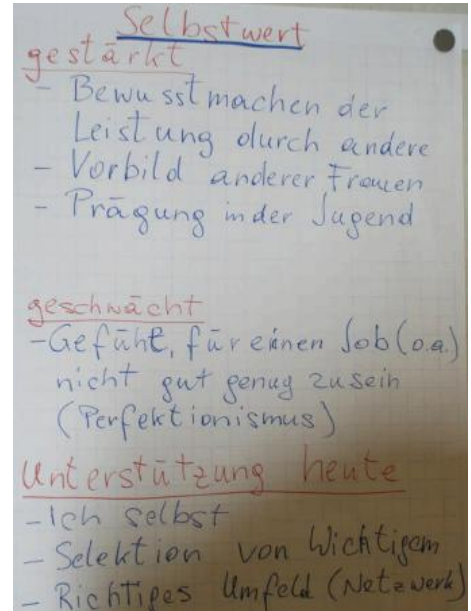 Selbstwert
gestärkt
- Bewusstmachen der
Leistung durch andere
- Vorbild anderer Frauen
- Prägung in der Jugend
geschwächt
- Gefühl, für einen Job (o.a.)
nicht gut genug zu sein
(Perfektionismus)
Unterstützung heute
- Ich selbst
- Selektion von Wichtigem
- Richtiges Umfeld (Netzwerk)